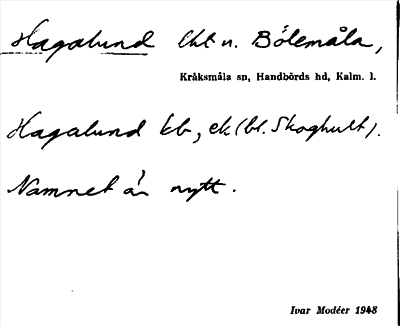 Hagalund lht u. Bölemåla,
Kråksmåla sn, Handbörds hd, Kalm. l.
Hagalund kb, ek (bl. Skoghult).
Namnet är nytt.
Ivar Modéer 1948